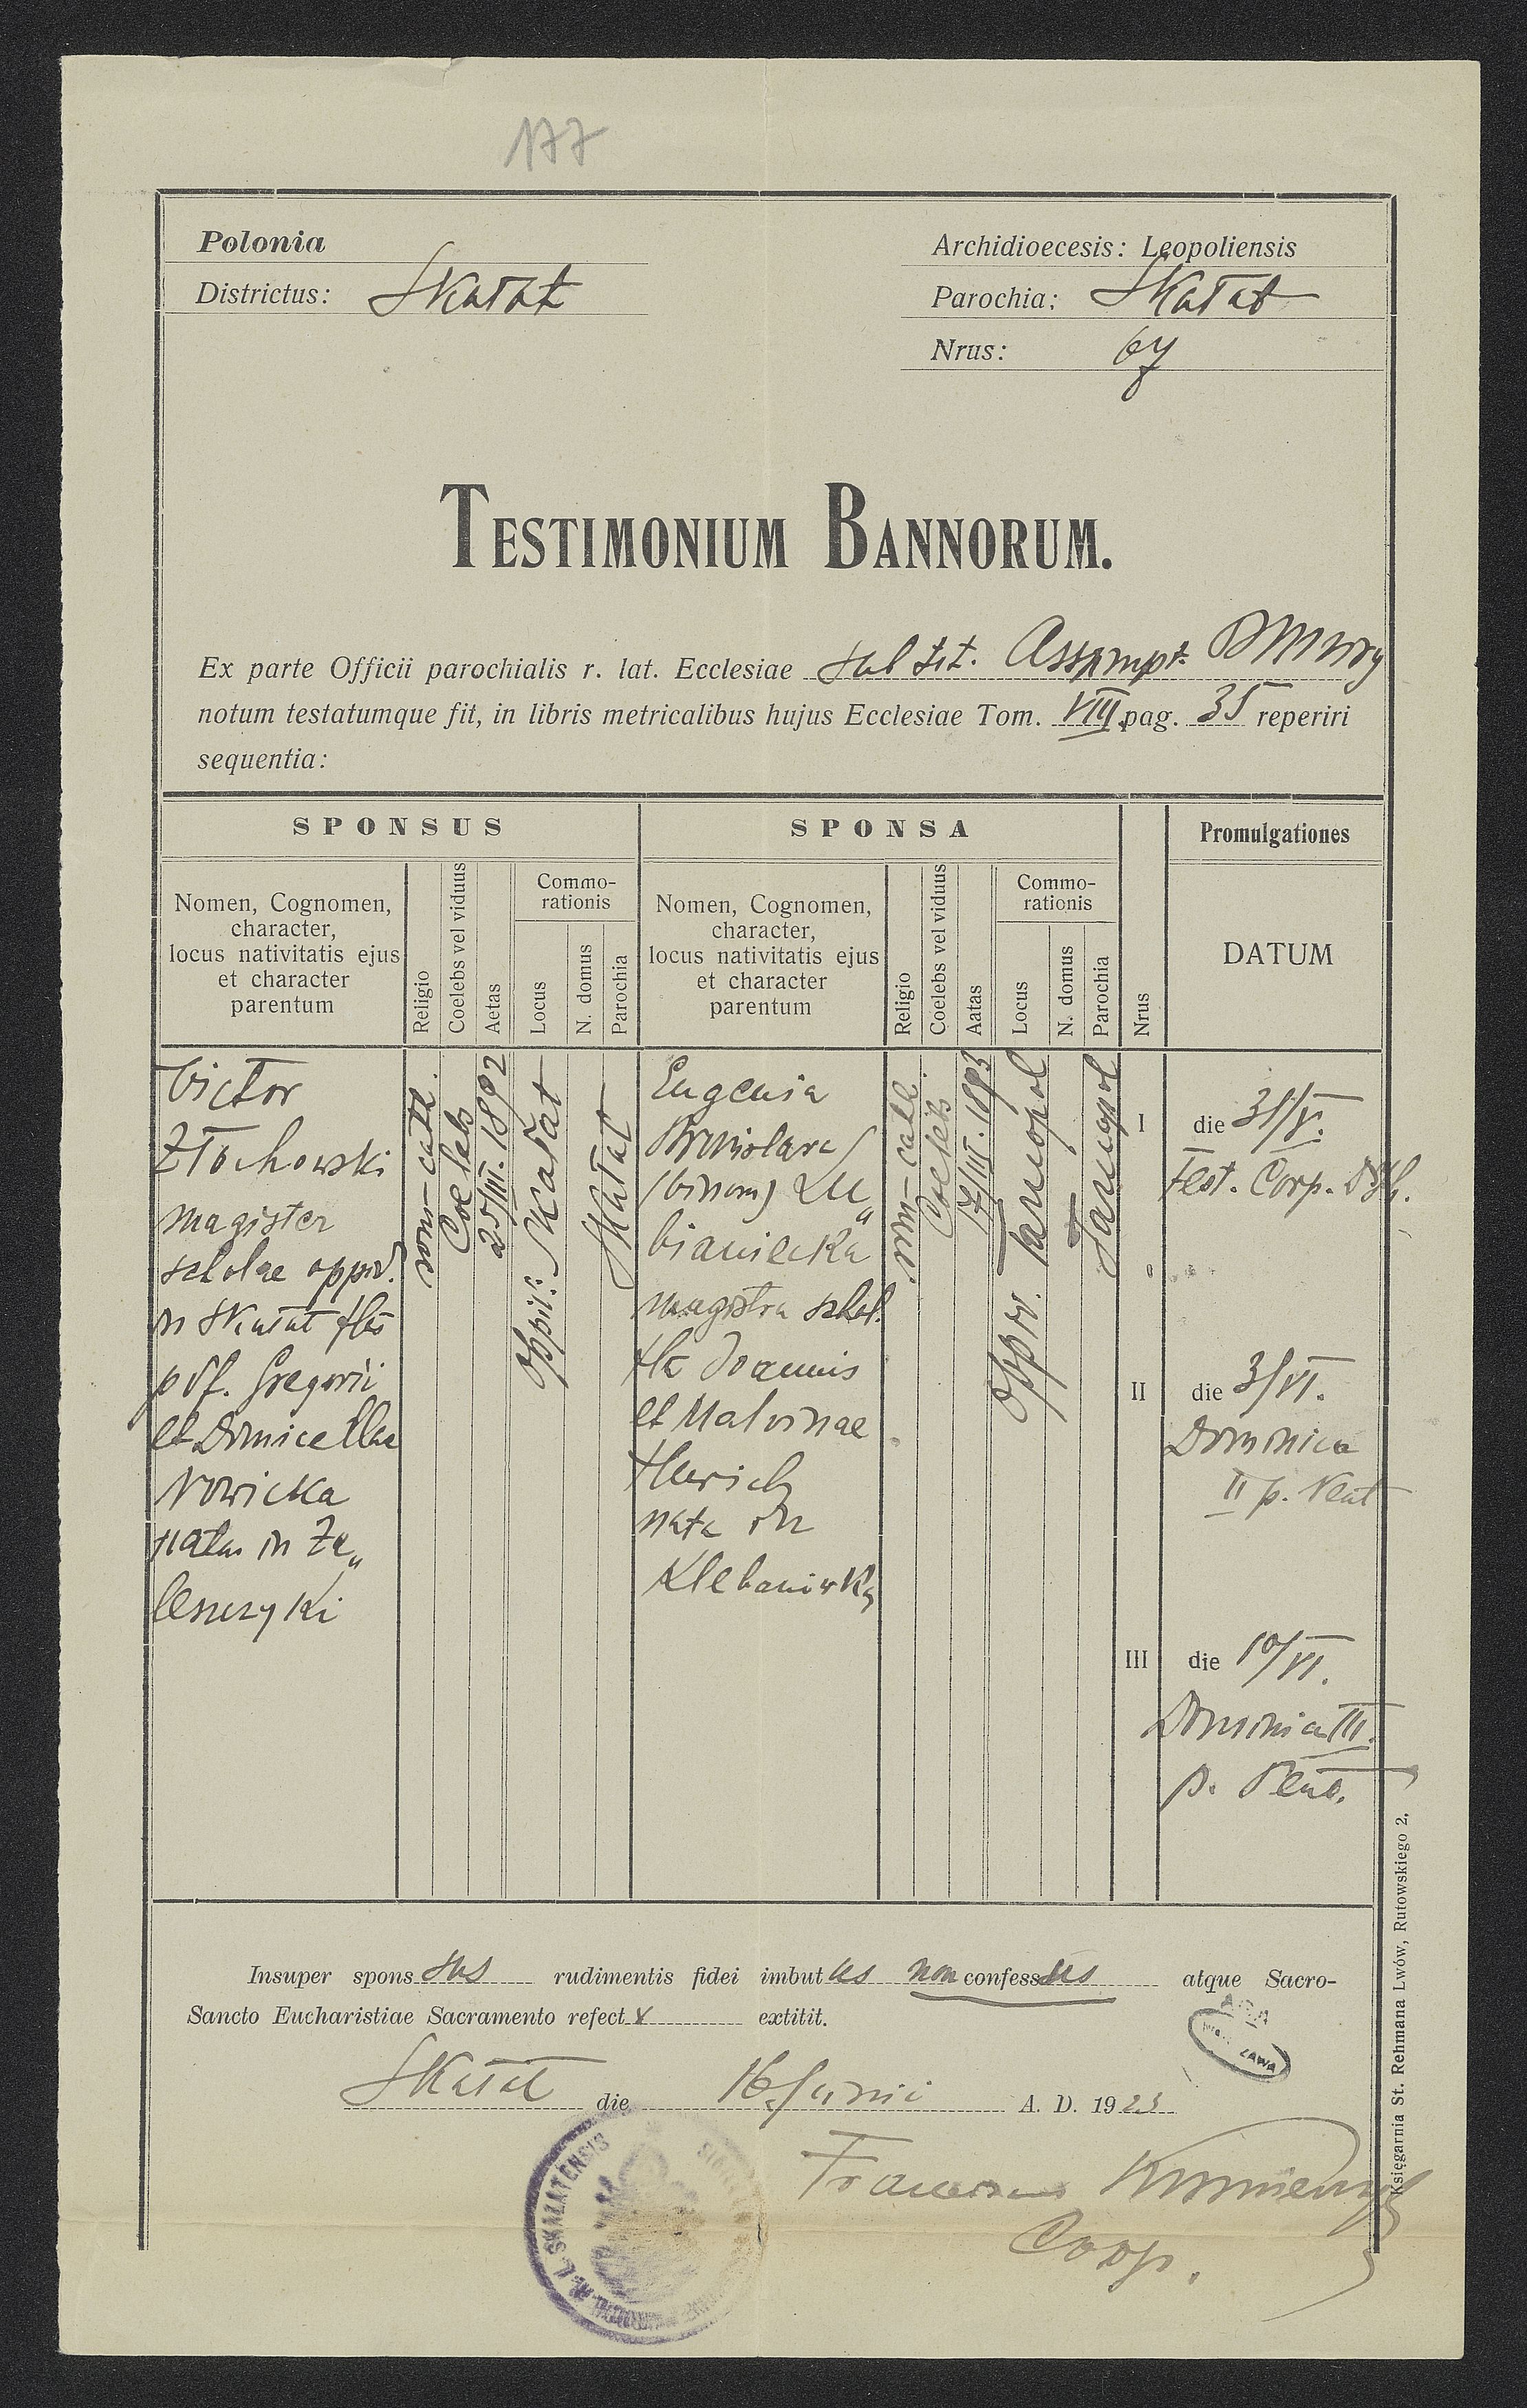 177
Polonia
Districtus: Skałat
Archidioecesis: Leopoliensis
Parochia: Skałat
Nrus: 67
TESTIMONIUM BANNORUM.
Ex parte Officii parochialis r. lat. Ecclesiae sub tit. Assumpt.
notum testatumque fit, in libris metricalibus hujus Ecclesiae Tom. VIII pag. 35 reperiri
sequentia:
SPONSUS
SPONSA
Promulgationes
Nomen, Cognomen,
character,
locus nativitatis ejus
et character
parentum
Religio
Coelebs vel viduus
Aetas
Commo-
rationis
Locus
N. domus
Parochia
Nomen, Cognomen,
character,
locus nativitatis ejus
et character
parentum
Religio
Coelebs vel viduus
Aatas
Commo-
rationis
Locus
N. domus
Parochia
Nrus
DATUM
Victor
Złochowski
magister
scholae oppid.
in Skałat fls
Gregorii
et Domicellae
Nowicka
natus in Za„
leszczyki
rom-cath.
Coelebs
25/III. 1892
oppid: Skałat
Skałat
Eugenia
Bronislava
(binom) Lu„
bianiecka
magistra schol.
fla Joannis
et Malvinae
nata in
Klebanówka
rom-cath.
Coelebs
17/III. 1893
oppid. Tarnopol
Tarnopol
I die 31/V.
Fest. Corp.
II die 3/VI.
Dominica
II p. Pent
III die 10/VI.
Dominica III.
p. Pent.
Insuper spons sus rudimentis fidei imbut us non confess us atque Sacro-
Sancto Eucharistiae Sacramento refect extitit.
Skałat die 16 Junii A. D. 1923
Coop.
R. L. SKAŁATENSIS
Księgarnia St. Rehmana Lwów, Rutowskiego 2.